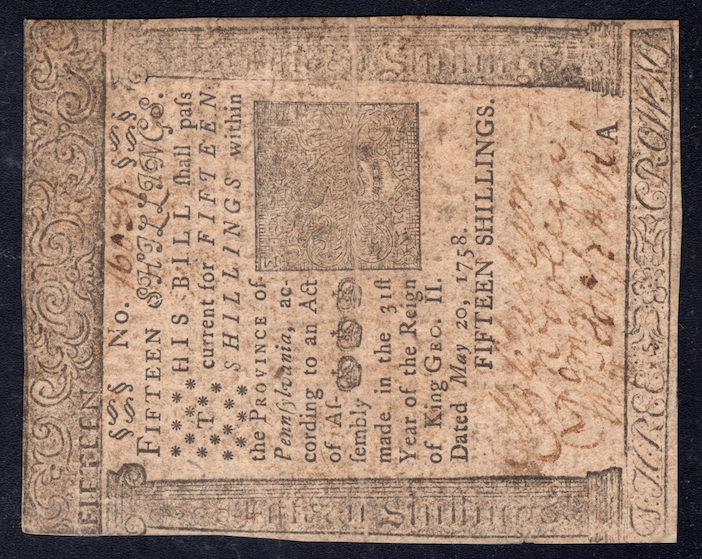 FIFTEEN
§§§ No. 16039 §§§
FIFTEEN SHILLINGS.
THIS BILL ſhall paſs
current for FIFTEEN
SHILLINGS within
the PROVINCE of
Pennſylvania, ac-
cording to an Act
of Aſ-
ſembly
made in the 31ſt
Year of the Reign
of King GEO. II.
Dated May 20, 1758.
FIFTEEN SHILLINGS.
A
THREE CROWNS
Fifteen Shillings
Fifteen Shillings